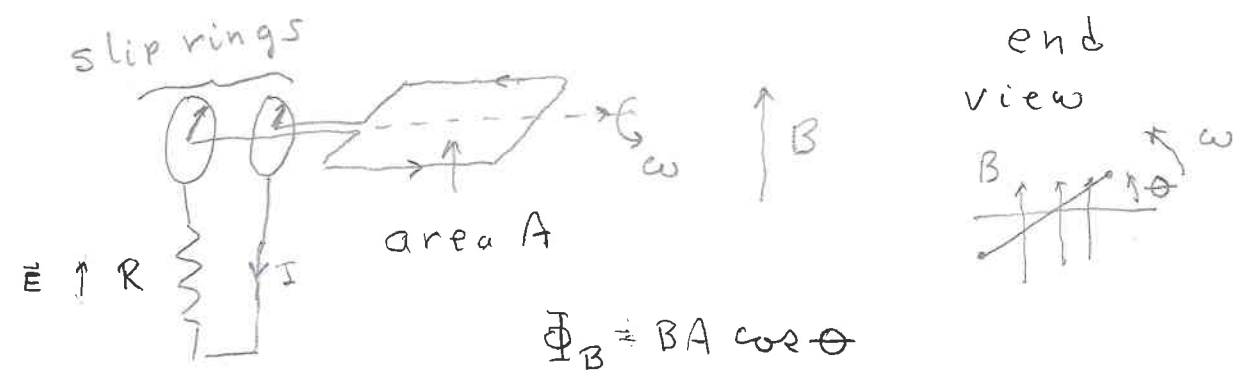 slip rings
end
view
ω
B
B
θ
ω
area A
E⃗ R I
Φ_B = BA cos θ